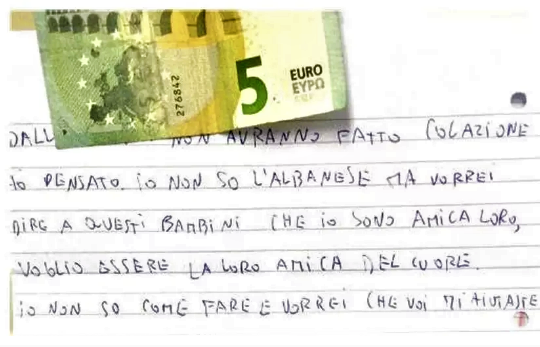 276842
5
EURO
ΕΥΡΩ
DALL NON AVRANNO FATTO COLAZIONE
HO PENSATO. IO NON SO L'ALBANESE MA VORREI
DIRE A QUESTI BAMBINI CHE IO SONO AMICA LORO,
VOGLIO ESSERE LA LORO AMICA DEL CUORE.
IO NON SO COME FARE E VORREI CHE VOI MI AIUTASTE